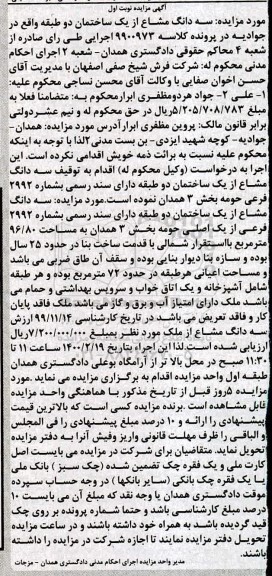 آگهی مزایده نوبت اول
مورد مزایده: سه دانگ مشاع از یک ساختمان دو طبقه واقع در
جوادیه در پرونده کلاسه ۹۹۰۰۹۷۳ اجرایی طی رای صادره از
شعبه ۴ محاکم حقوقی دادگستری همدان- شعبه ۲ اجرای احکام
مدنی محکوم له: شرکت فرش شیخ صفی اصفهان با مدیریت آقای
حسن اخوان صفایی با وکالت آقای محسن نساجی محکوم علیه:
۱- علی ۲- جواد هردومظفری ابرارمحکوم به: متضامنا فعلا به
مبلغ ۵/۲۰۵/۷۰۸/۷۸۳ریال در حق محکوم له و نیم عشردولتی
برابر قانون مالک: پروین مظفری ابرارآدرس مورد مزایده: همدان-
جوادیه- کوچه شهید ایزدی- بن بست مدنی ۲لذا با توجه به اینکه
محکوم علیه نسبت به برائت ذمه خویش اقدامی نکرده است. این
اجرا به درخواست (وکیل محکوم له) اقدام به توقیف سه دانگ
مشاع از یک ساختمان دو طبقه دارای سند رسمی بشماره ۲۹۹۲
فرعی حومه بخش ۳ همدان نموده است.مورد مزایده: سه دانگ
مشاع از یک ساختمان دو طبقه دارای سند رسمی بشماره ۲۹۹۲
فرعی از یک اصلی حومه بخش ۳ همدان به مساحت ۹۶/۸۰
مترمربع بااستقرار شمالی با قدمت ساخت بنا در حدود ۲۵ سال
بوده و سازه بنا دیوار بنایی بوده و سقف آن طاق ضربی می باشد
و مساحت اعیانی هرطبقه در حدود ۷۲ مترمربع بوده و هر طبقه
شامل آشپزخانه و یک اتاق خواب و سرویس بهداشتی و حمام می
باشد ملک دارای امتیاز آب و برق و گاز می باشد ملک فاقد پایان
کار و فاقد تعریض می باشد. در تاریخ کارشناسی ۹۹/۱۱/۱۴ ارزش
سه دانگ مشاع از ملک مورد نظر بمبلغ ۷/۲۰۰/۰۰۰/۰۰۰ریال
ارزیابی شده است.لذا این اجرا، بتاریخ ۱۴۰۰/۳/۱۹ ساعت ۱۱ تا
۱۱:۳۰ صبح در محل بالا تر از آرامگاه بوعلی دادگستری همدان
طبقه اول واحد مزایده اقدام به برگزاری مزایده می نماید. مورد
مزایده ۵روز قبل از تاریخ مذکور با هماهنگی واحد مزایده
قابل مشاهده است. برنده مزایده کسی است که بالاترین قیمت
پیشنهادی را ارائه و ۱۰ درصد مبلغ پیشنهادی را فی المجلس
و الباقی را ظرف مهلت قانونی واریز وفیش آنرا به دفتر مزایده
تحویل نماید. متقاضیان برای شرکت در مزایده می بایست اصل
کارت ملی و یک فقره چک تضمین شده (چک سبز ) بانک ملی
یا یک فقره چک بانکی (سایر بانکها ) در وجه حساب سپرده
موقت دادگستری همدان یا وجه نقد که مبلغ آن می بایست ۱۰
درصد مبلغ کارشناسی باشد و حتما شماره پرونده بر روی چک
قید گردیده باشد به همراه خود داشته باشند و در ساعت مزایده
تحویل دفتر مزایده نمایند تا اجازه شرکت در مزایده را داشته
باشند.
مدیر واحد مزایده اجرای احکام مدنی دادگستری همدان – مزجات